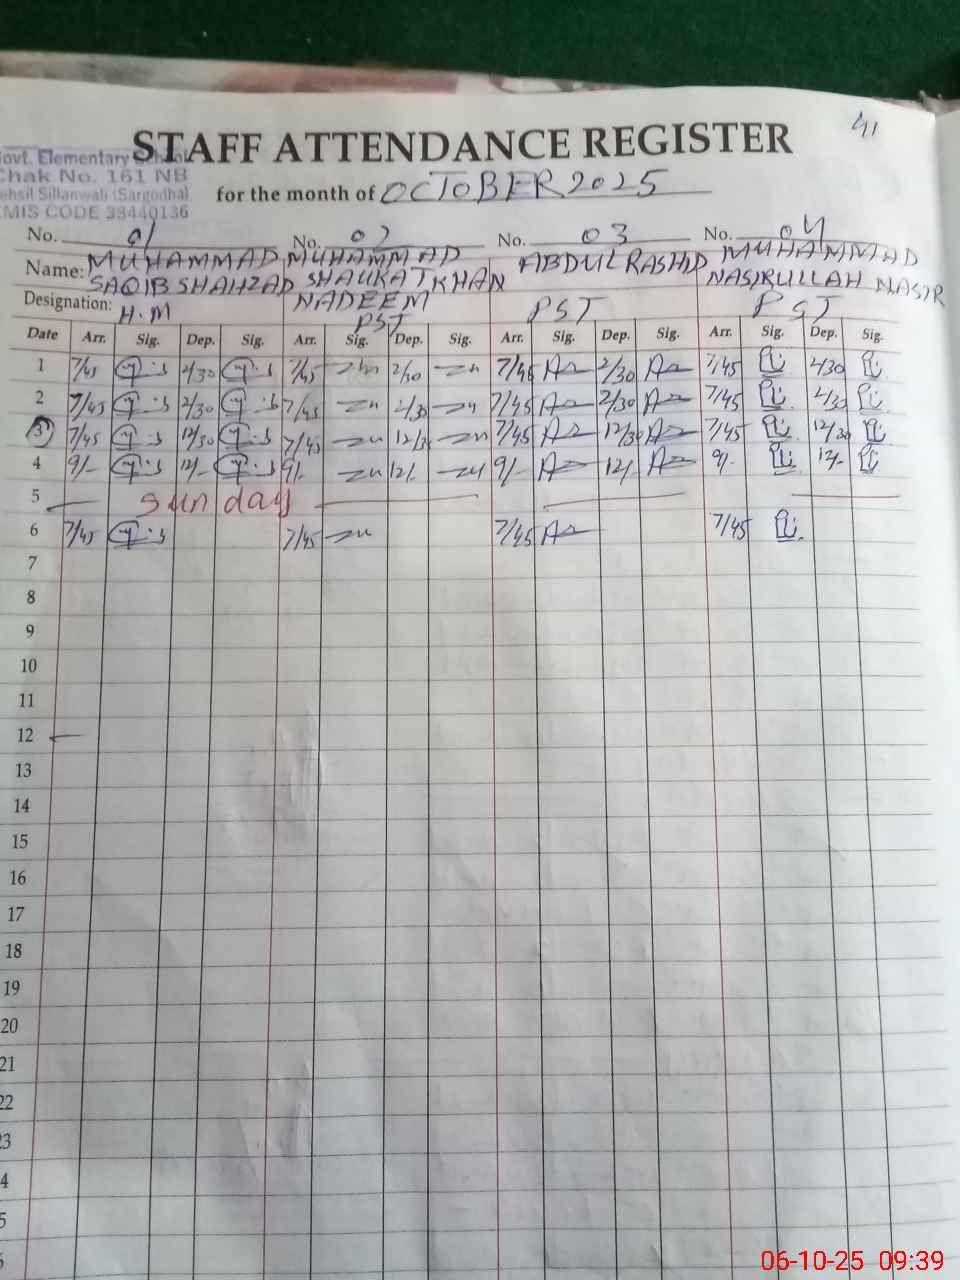 41
STAFF ATTENDANCE REGISTER
Govt. Elementary School
Chak No. 161 NB
Tehsil Sillanwali (Sargodha)
EMIS CODE 38440136
for the month of OCTOBER 2025
No. 01 No. 02 No. 03 No. 04
Name: MUHAMMAD SAQIB SHAHZAD MUHAMMAD SHAUKAT KHAN NADEEM ABDUL RASHID MUHAMMAD NASIRULLAH NASIR
Designation: H.M PST PST PST
Date Arr. Sig. Dep. Sig. Arr. Sig. Dep. Sig. Arr. Sig. Dep. Sig. Arr. Sig. Dep. Sig.
1 7/45 2/30 7/45 2/30 7/45 2/30 7/45 2/30
2 7/45 2/30 7/45 2/30 7/45 2/30 7/45 2/30
3 7/45 12/30 7/45 12/30 7/45 12/30 7/45 12/30
4 9/- 12/- 9/- 12/- 9/- 12/- 9/- 12/-
5 Sunday
6 7/45 7/45 7/45 7/45
7
8
9
10
11
12
13
14
15
16
17
18
19
20
21
22
23
4
5
6
06-10-25 09:39